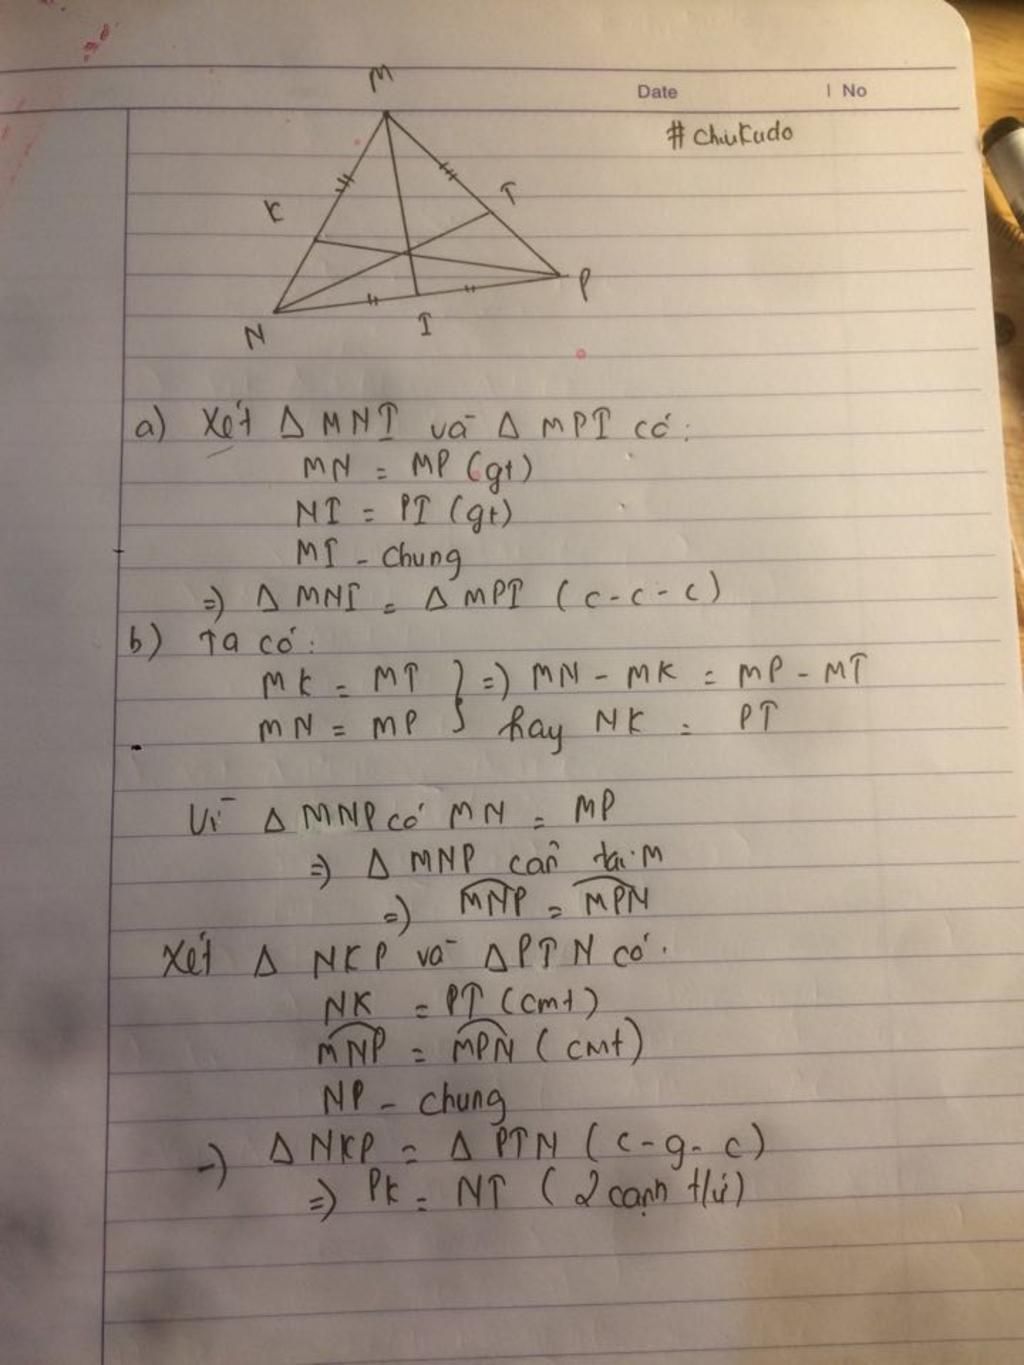 Date | No
#chiukudo
M
K
T
P
N
I
a) Xét Δ MNI và Δ MPI có:
MN = MP (gt)
NI = PI (gt)
MI - chung
=) Δ MNI = Δ MPI (c-c-c)
b) Ta có:
MK = MT } =) MN - MK = MP - MT
MN = MP } hay NK = PT
Vì Δ MNP có MN = MP
=) Δ MNP cân tại M
=) MNP = MPN
Xét Δ NKP và Δ PTN có:
NK = PT (cmt)
MNP = MPN (cmt)
NP - chung
=) Δ NKP = Δ PTN (c-g-c)
=) PK = NT (2 cạnh t/ứ)